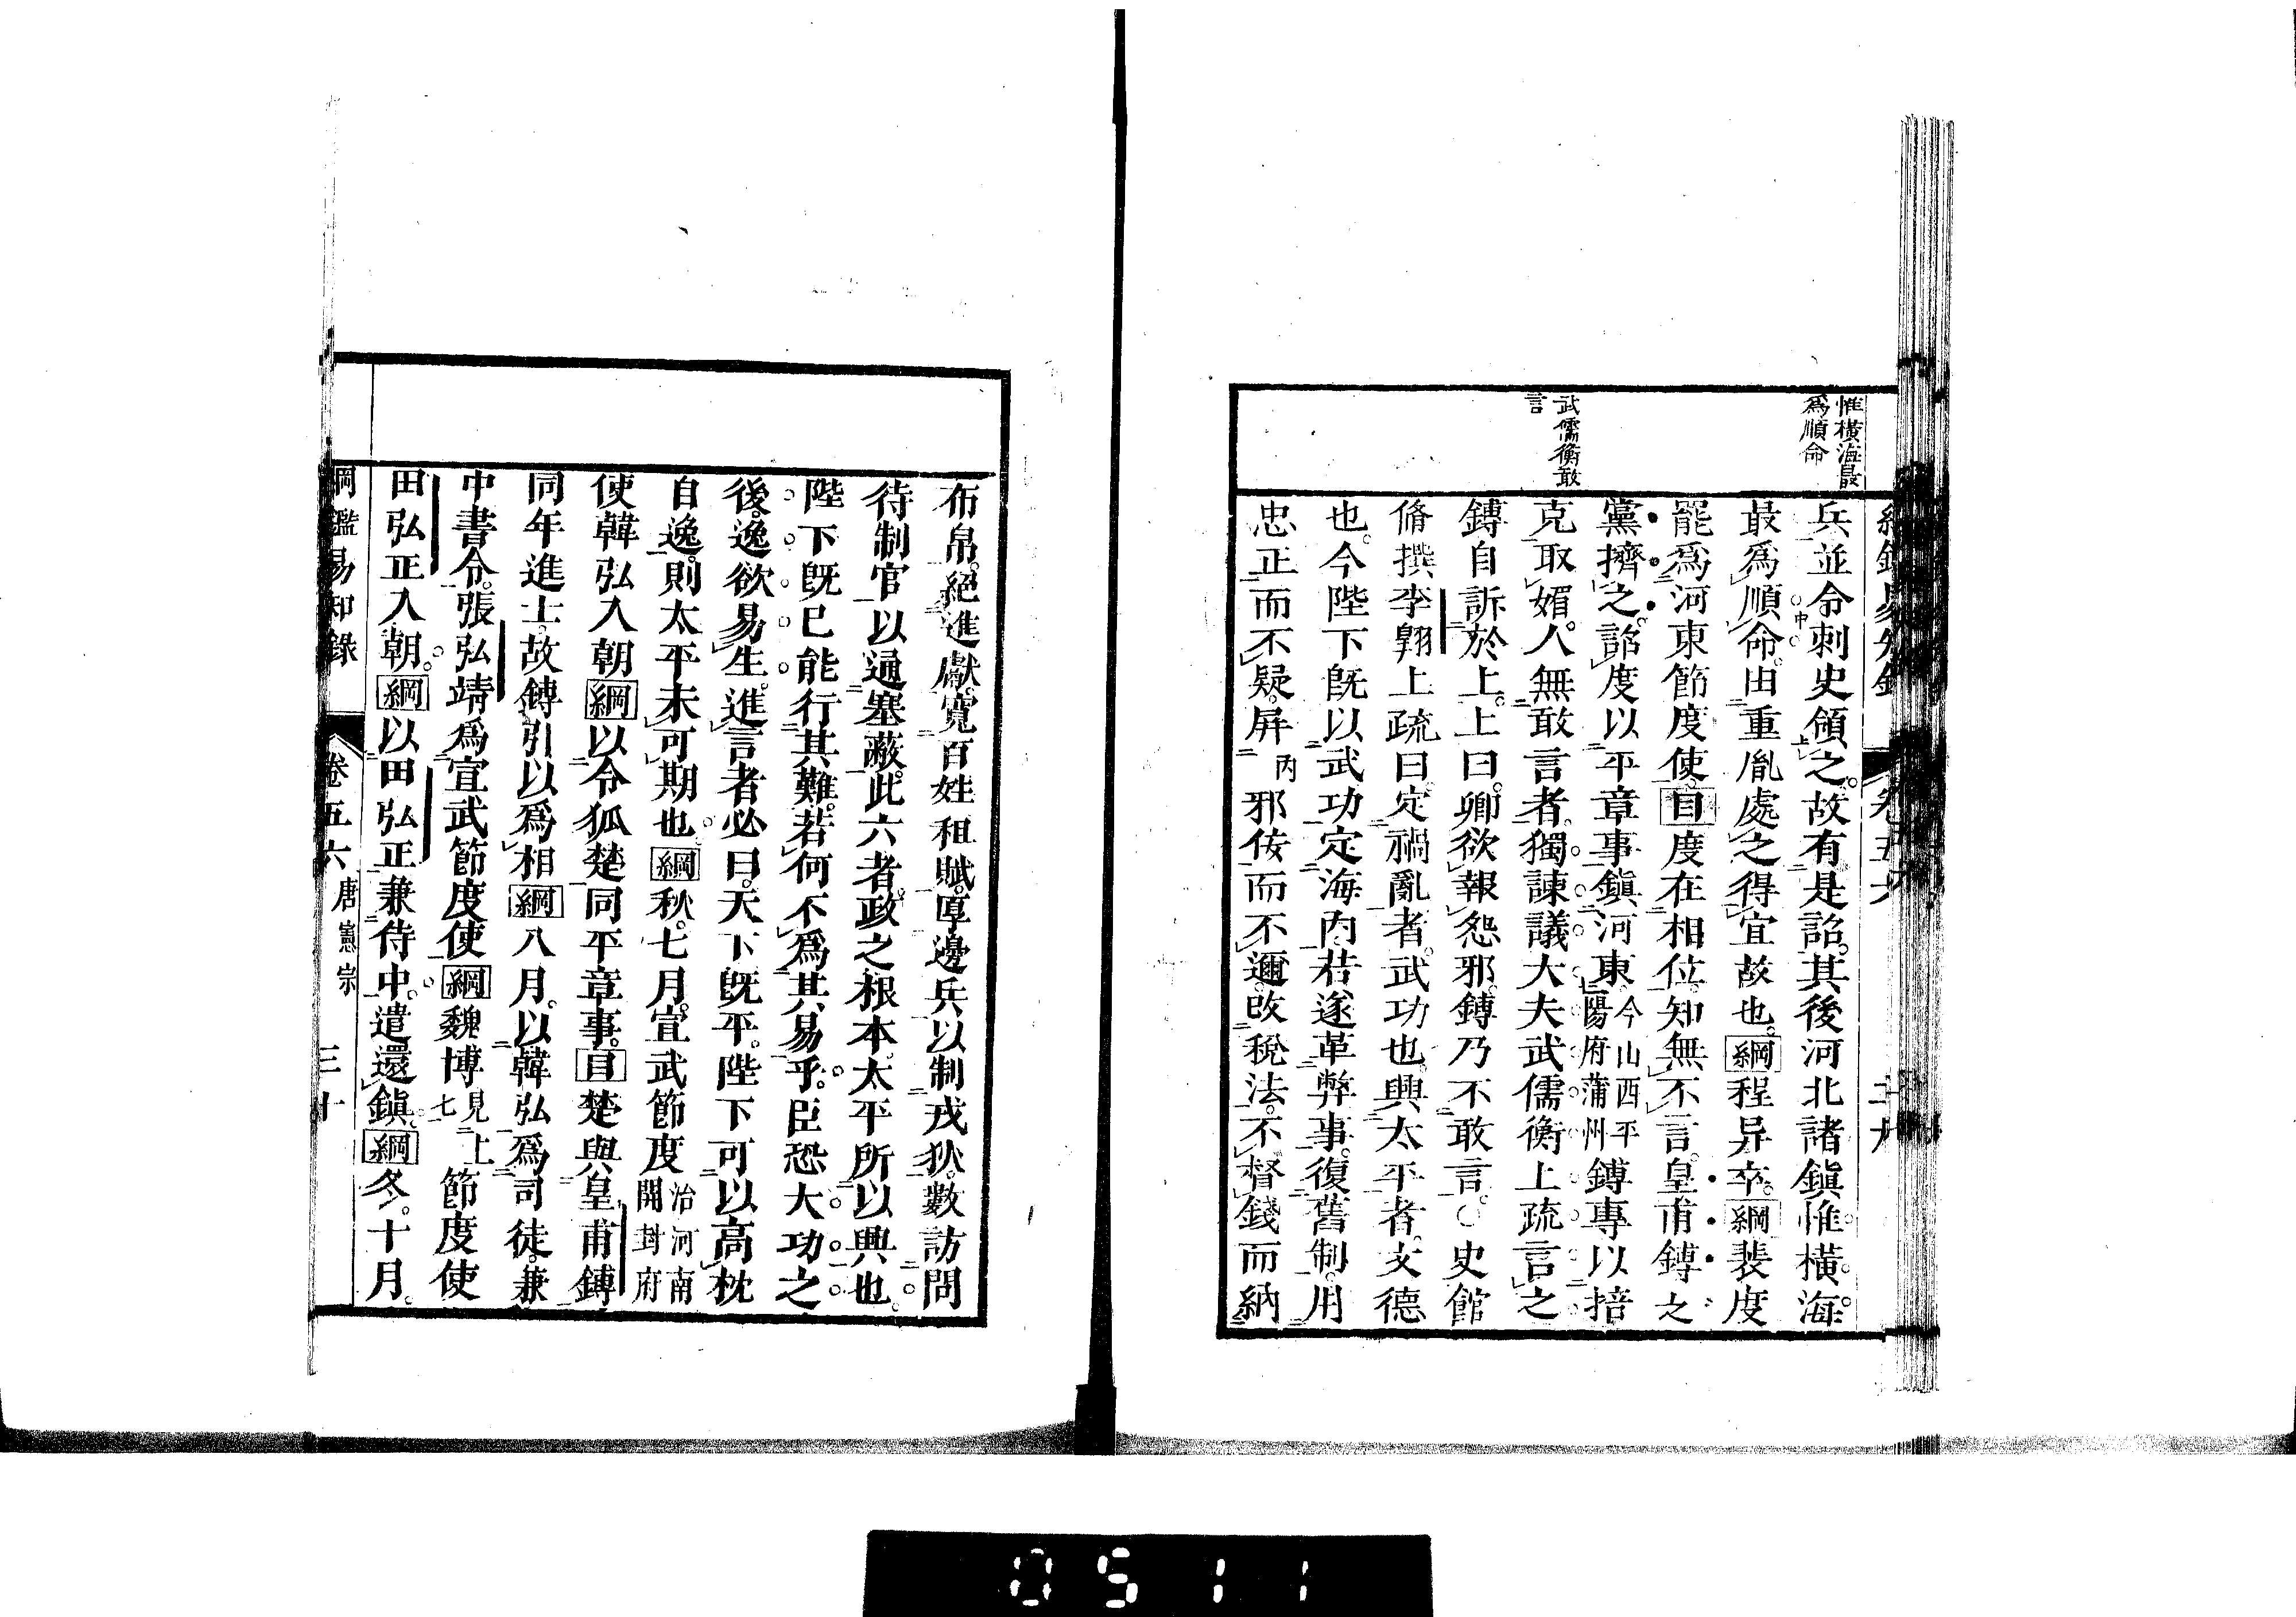 惟橫海最
爲順命
兵並令刺史領之。故有是詔。其後河北諸鎭惟橫海
最爲順命。由重胤處之得宜故也。綱程异卒。綱裴度
罷爲河東節度使。目度在相位。知無不言。皇甫鎛之
黨擠之。詔度以平章事鎭河東。今山西平陽府蒲州鎛專以掊
武儒衡敢
言
克取媚。人無敢言者。獨諫議大夫武儒衡上疏言之
鎛自訴於上。上曰。卿欲報怨邪。鎛乃不敢言。○史館
脩撰李翶上疏曰。定禍亂者。武功也。興太平者。文德
也。今陛下旣以武功定海內。若遂革弊事。復舊制。用
忠正而不疑。屏丙邪佞而不邇。改稅法。不督錢而納
布帛。絕進獻。寬百姓租賦。厚邊兵以制戎狄。數訪問
待制官以通塞蔽。此六者。政之根本。太平所以興也。
陛下旣已能行其難。若何不爲其易乎。臣恐大功之
後。逸欲易生。進言者必曰。天下旣平。陛下可以高枕
自逸。則太平未可期也。綱秋。七月。宣武節度治河南開封府
使韓弘入朝綱以令狐楚同平章事。目楚與皇甫鎛
同年進士。故鎛引以爲相綱八月。以韓弘爲司徒。兼
中書令。張弘靖爲宣武節度使綱魏博見上七節度使
田弘正入朝。綱以田弘正兼侍中。遣還鎭。綱冬。十月。
綱鑑易知錄 卷五六 唐憲宗 三十
0511